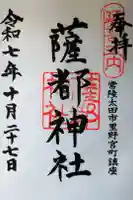 奉拝
常陸太田市里野宮町鎮座
薩都神社
令和七年十月二十七日